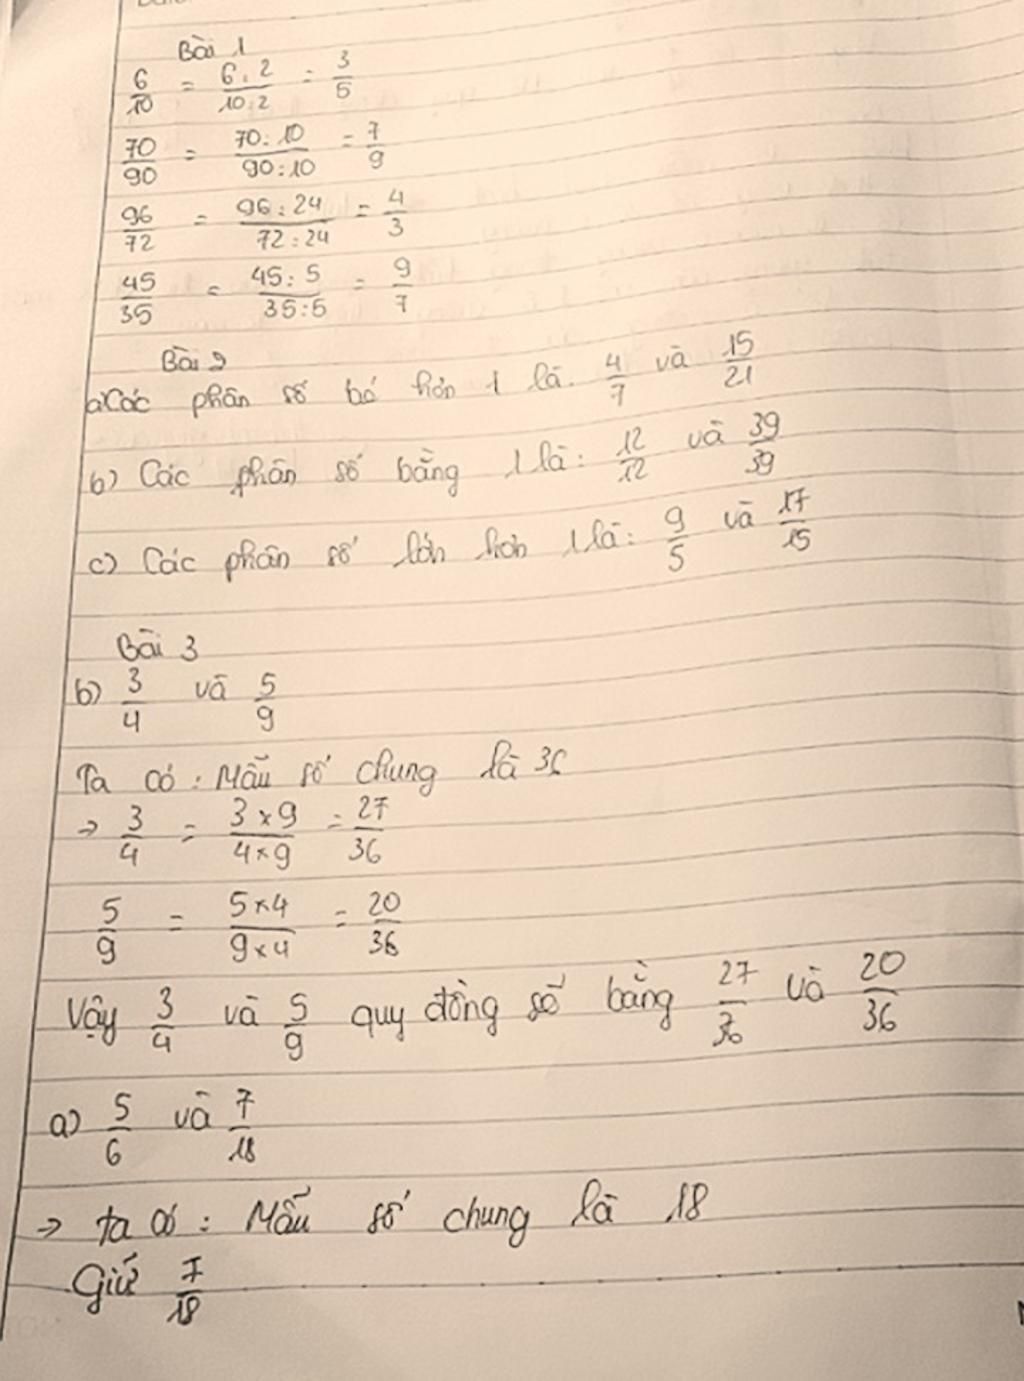 Bài 1
6/10 = 6:2/10:2 = 3/5
70/90 = 70:10/90:10 = 7/9
96/72 = 96:24/72:24 = 4/3
45/35 = 45:5/35:5 = 9/7
Bài 2
a) Các phân số bé hơn 1 là. 4/7 và 15/21
b) Các phân số bằng 1 là: 12/12 và 39/39
c) Các phân số lớn hơn 1 là: 9/5 và 17/15
Bài 3
b) 3/4 và 5/9
Ta có: Mẫu số chung là 36
→ 3/4 = 3×9/4×9 = 27/36
5/9 = 5×4/9×4 = 20/36
Vậy 3/4 và 5/9 quy đồng số bằng 27/36 và 20/36
a) 5/6 và 7/18
→ ta có: Mẫu số chung là 18
Giữ 7/18